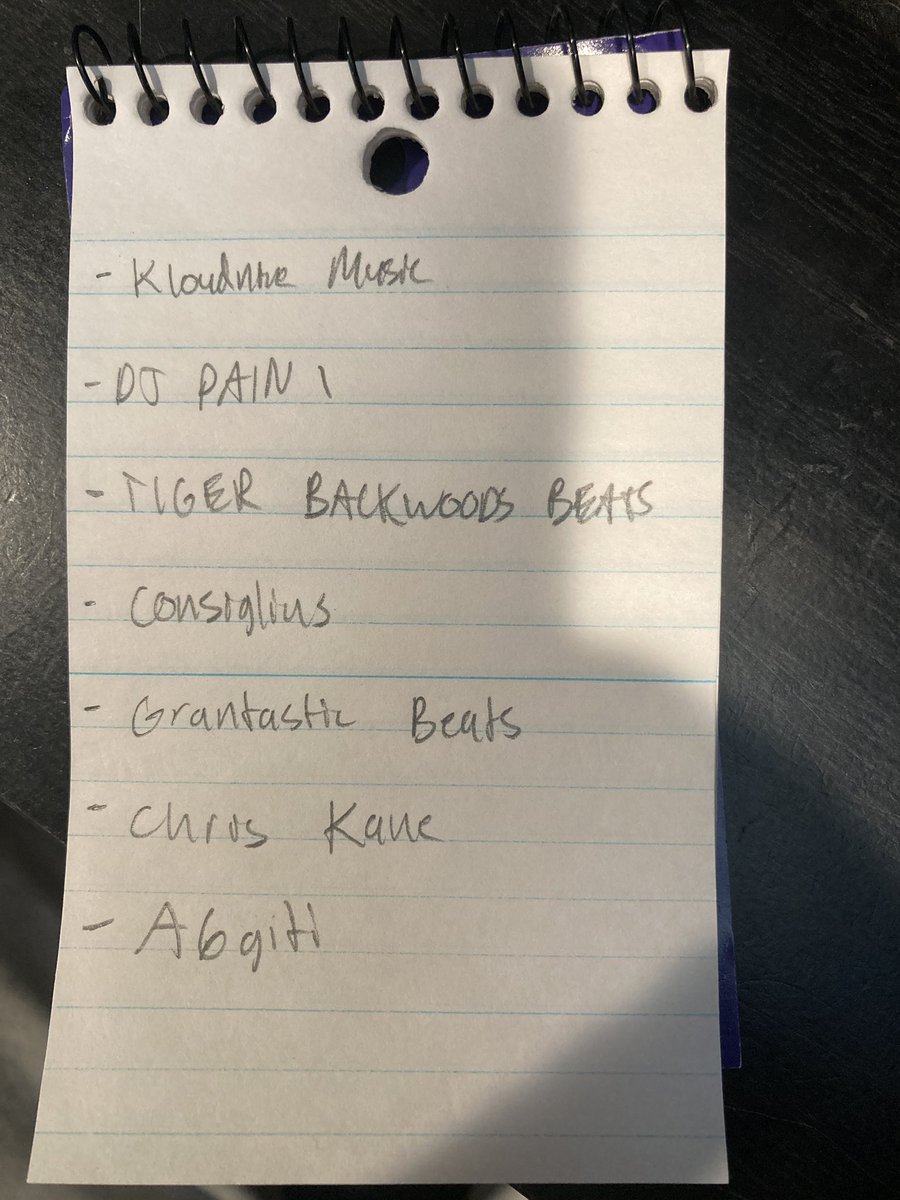 - Kloudnine Music
- DJ PAIN 1
- TIGER BACKWOODS BEATS
- Consiglius
- Grantastic Beats
- Chris Kane
- A6gitl